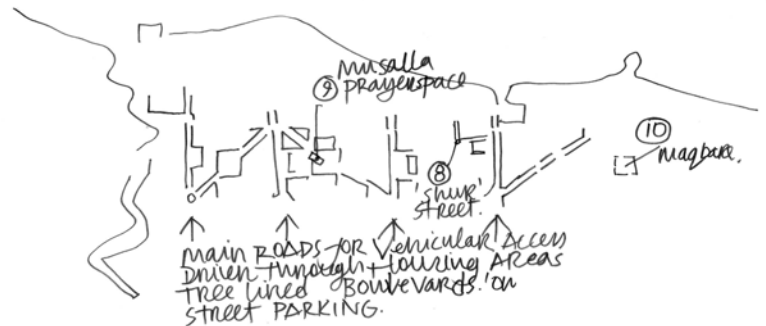 ⑨ Musalla
prayerspace
⑩
Maqbara.
⑧
'shuk'
street.
Main ROADS for Vehicular Access
Driven through Housing Areas
Tree Lined Boulevards. on
street PARKING.